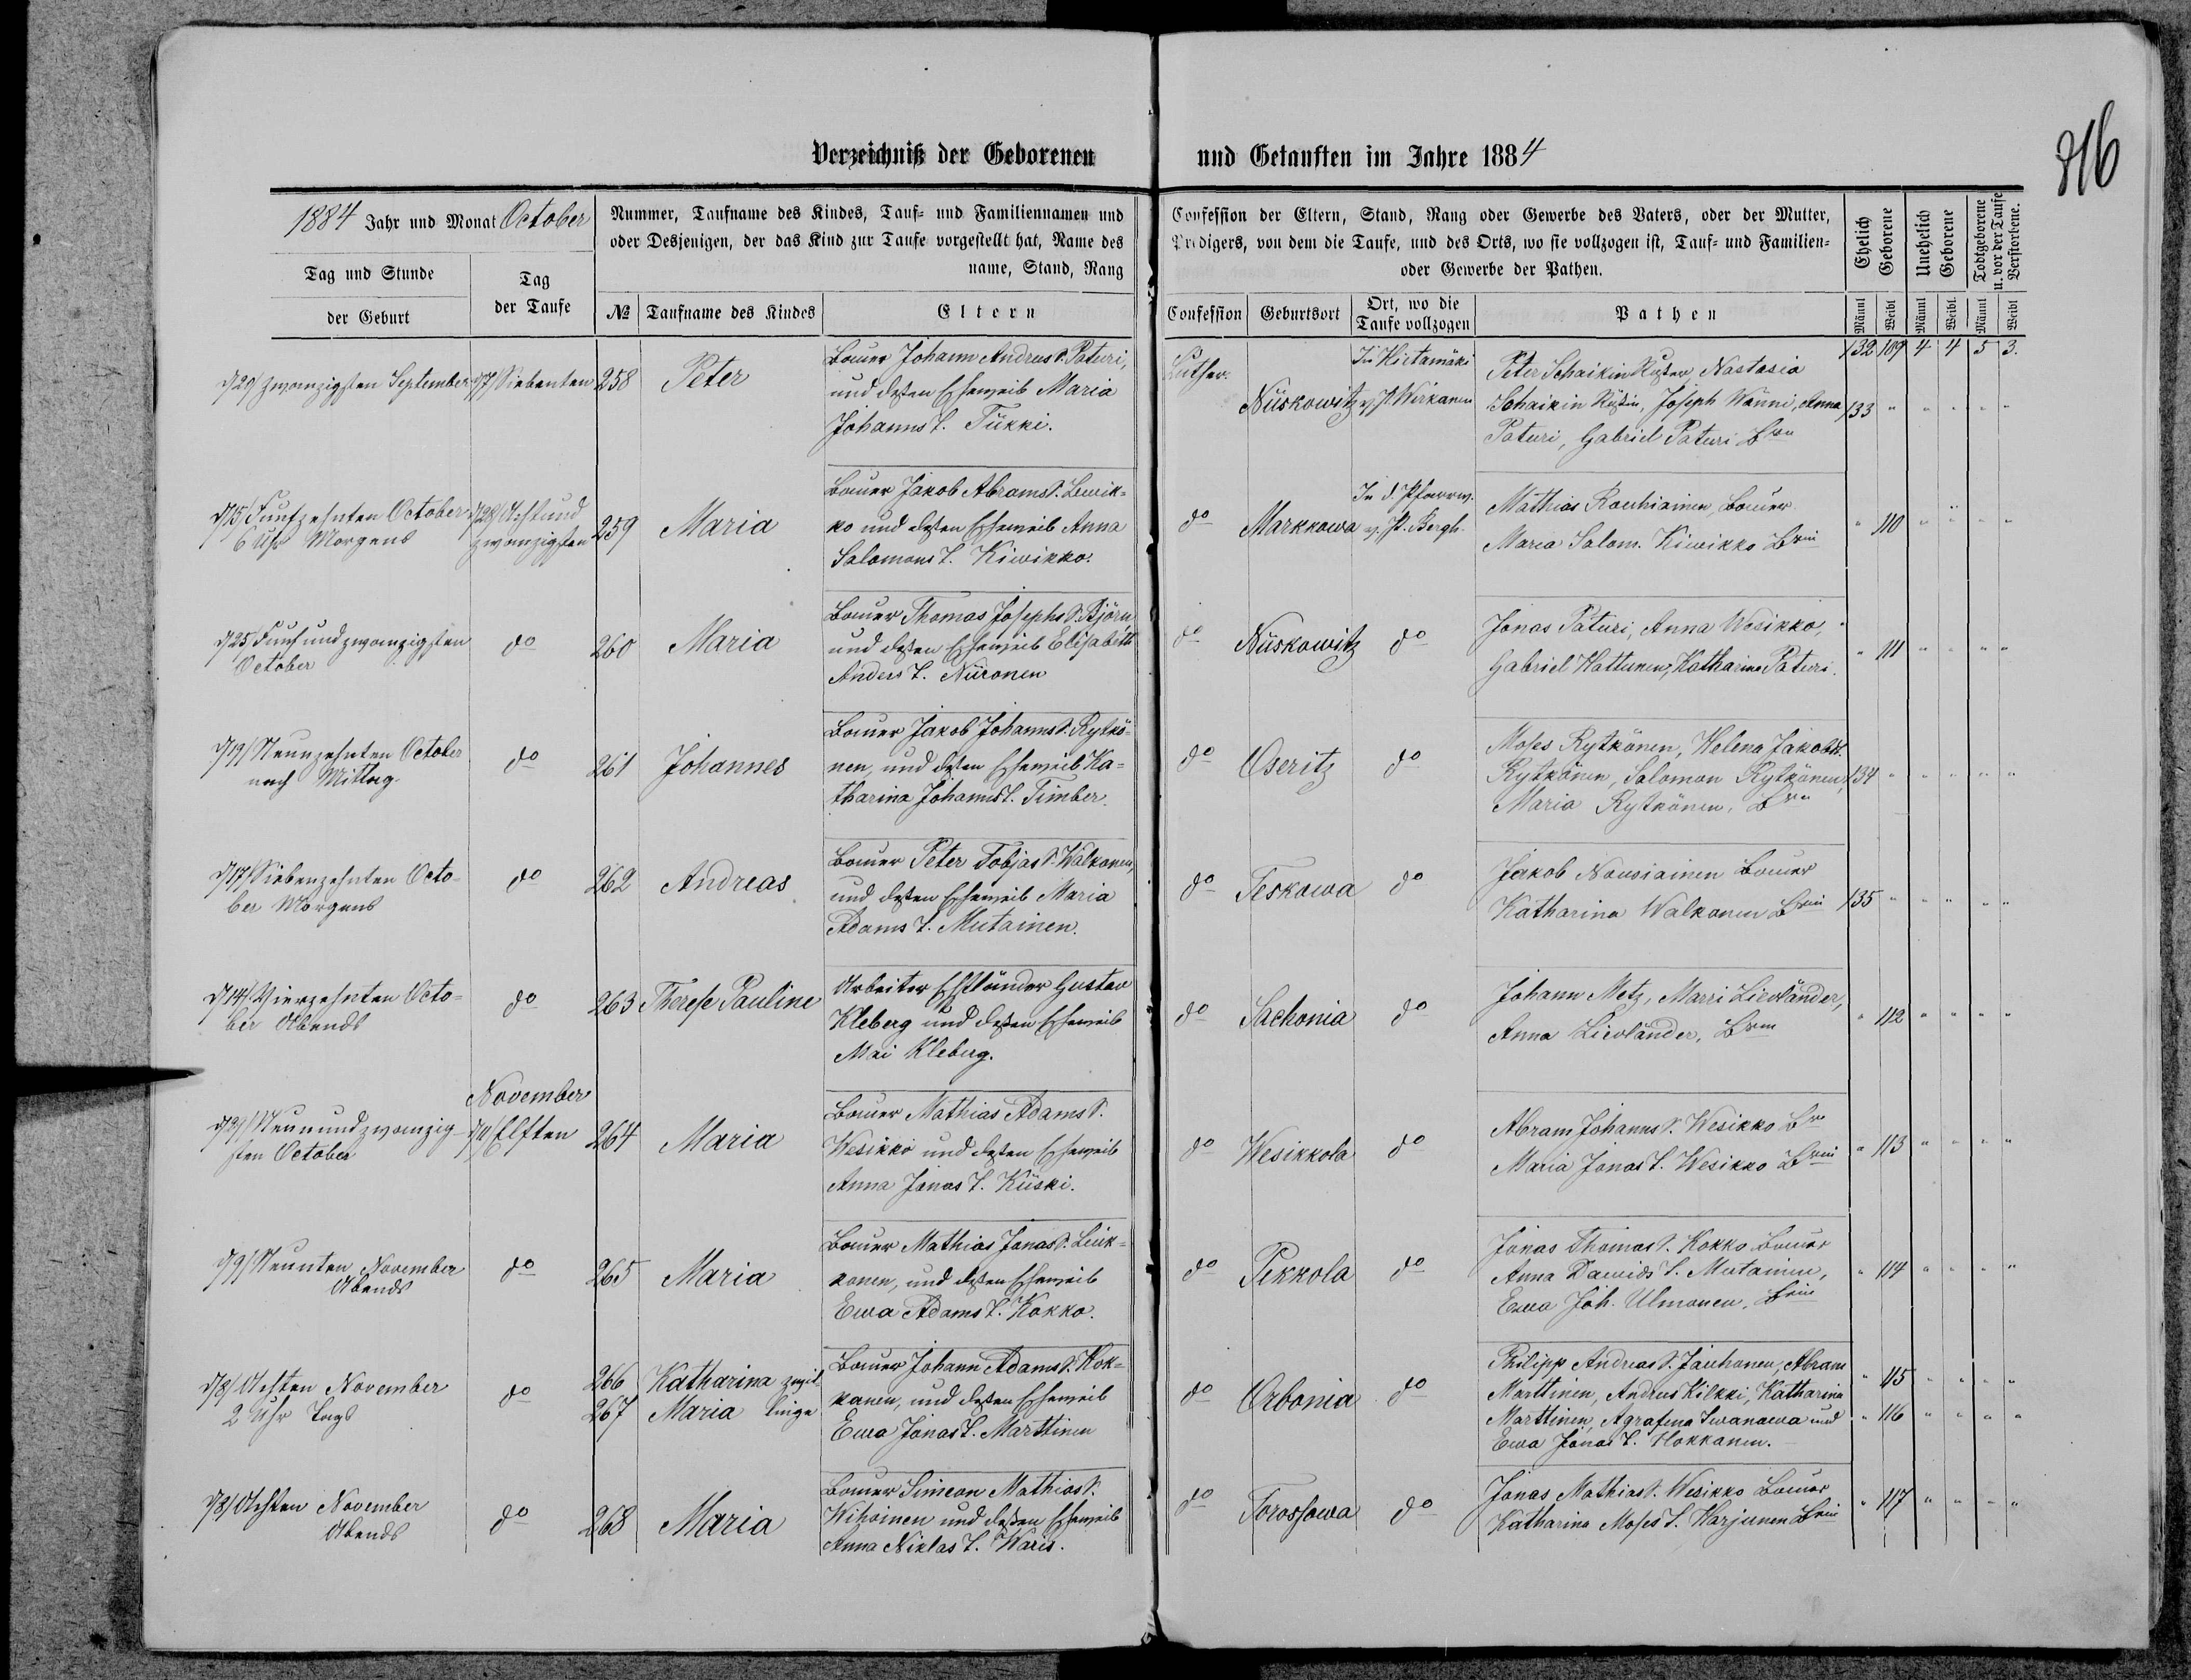 816
Verzeichniß der Geborenen und Getauften im Jahre 1884
1884 Jahr und Monat October
Tag und Stunde
der Geburt
Tag
der Taufe
Nummer, Taufname des Kindes, Tauf- und Familiennamen und
oder Desjenigen, der das Kind zur Taufe vorgestellt hat, Name des
name, Stand, Rang
№ Taufname des Kindes Eltern
Confession der Eltern, Stand, Rang oder Gewerbe des Vaters, oder der Mutter,
Predigers, von dem die Taufe, und des Orts, wo sie vollzogen ist, Tauf- und Familien-
oder Gewerbe der Pathen.
Confession Geburtsort Ort, wo die
Taufe vollzogen
Pathen
Ehelich
Geborene
Unehelich
Geborene
Todtgeborene
u. vor der Taufe
Verstorbene.
Männl Weibl Männl Weibl. Männl Weibl
132 109 4 4 5 3.
d/20/ zwanzigsten September
d/7/ Siebenten
258 Peter
Bauer Johann Andreas S. Paturi,
und deßen Eheweib Maria
Johanns T. Tükki.
Luther. Nüskowitz
In Hietamäki
v. P. Wirkanen
Peter Schaikin Rußer, Nastasia
Schaikin Rußin, Joseph Wanni, Anna
Paturi, Gabriel Paturi Brn
133 " " " " "
d/15/ Funfzehnten October
6 Uhr Morgens
d/28/ Acht und
zwanzigsten
259 Maria
Bauer Jakob Abrams S. Lewik-
ko und deßen Eheweib Anna
Salomons T. Kiwikko.
do Markkowa
In d. Pfarrw.
v. P. Bergh.
Mathias Rouhiainen Bauer
Maria Salom. Kiwikko Brin
" 110 " " " "
d/25/ Funf und zwanzigsten
October
do 260 Maria
Bauer Thomas Josephs S. Björn
und deßen Eheweib Elisabeth
Anders T. Nüronen
do Nüskowitz do
Jonas Paturi, Anna Wesikko,
Gabriel Hattunen, Katharina Paturi.
" 111 " " " "
d/19/ Neunzehnten October
nach Mittag.
do 261 Johannes
Bauer Jakob Johanns S. Rytkö-
nen, und deßen Eheweib Ka-
tharina Johanns T. Timber.
do Oseritz do
Moses Rytkönen, Helena Jakobs T.
Rytkönen, Salomon Rytkönen,
Maria Rytkönen, Brn
134 " " " " "
d/17/ Siebenzehnten Octo-
ber Morgens
do 262 Andreas
Bauer Peter Tobias S. Walkonen,
und deßen Eheweib Maria
Adams T. Mutainen.
do Teskowa do
Jakob Nousiainen Bauer
Katharina Walkonen Brin
135 " " " " "
d/14/ Vierzehnten Octo-
ber Abends
do 263 Therese Pauline
Arbeiter Ehstländer Gustav
Kleberg und deßen Eheweib
Mai Kleberg.
do Sachonia do
Johann Metz, Marri Liewländer,
Anna Liewländer, Brin
" 112 " " " "
d/29/ Neunundzwanzig-
sten October
November
d/11/ Elften
264 Maria
Bauer Mathias Adams S.
Wesikko und deßen Eheweib
Anna Jonas T. Kiiski.
do Wesikkola do
Abram Johanns S. Wesikko Br
Maria Jonas T. Wesikko Brin
" 113 " " " "
d/9/ Neunten November
Abends
do 265 Maria
Bauer Mathias Jonas S. Leik-
konen, und deßen Eheweib
Ewa Adams T. Kokko.
do Pekkola do
Jonas Thomas S. Kokko Bauer
Anna Dawids T. Mutainen,
Ewa Joh. Ulmonen, Brin
" 114 " " " "
d/8/ Achten November
2 Uhr Tags
do 266 Katharina zwil-
267 Maria linge
Bauer Johann Adams S. Hok-
kanen, und deßen Eheweib
Ewa Jonas T. Marttinen
do Orbonia do
Philipp Andreas S. Jauhonen, Abram
Marttinen, Andreas Kilkki, Katharina
Marttinen, Agrafena Iwanowa und
Ewa Jonas T. Hokkanen.
" 115 " " " "
" 116 " " " "
d/8/ Achten November
Abends
do 268 Maria
Bauer Simeon Mathias S.
Wihoinen und deßen Eheweib
Anna Niklas T. Waris.
do Torossowa do
Jonas Mathias S. Wesikko Bauer
Katharina Moses T. Harjunen Brin
" 117 " " " "